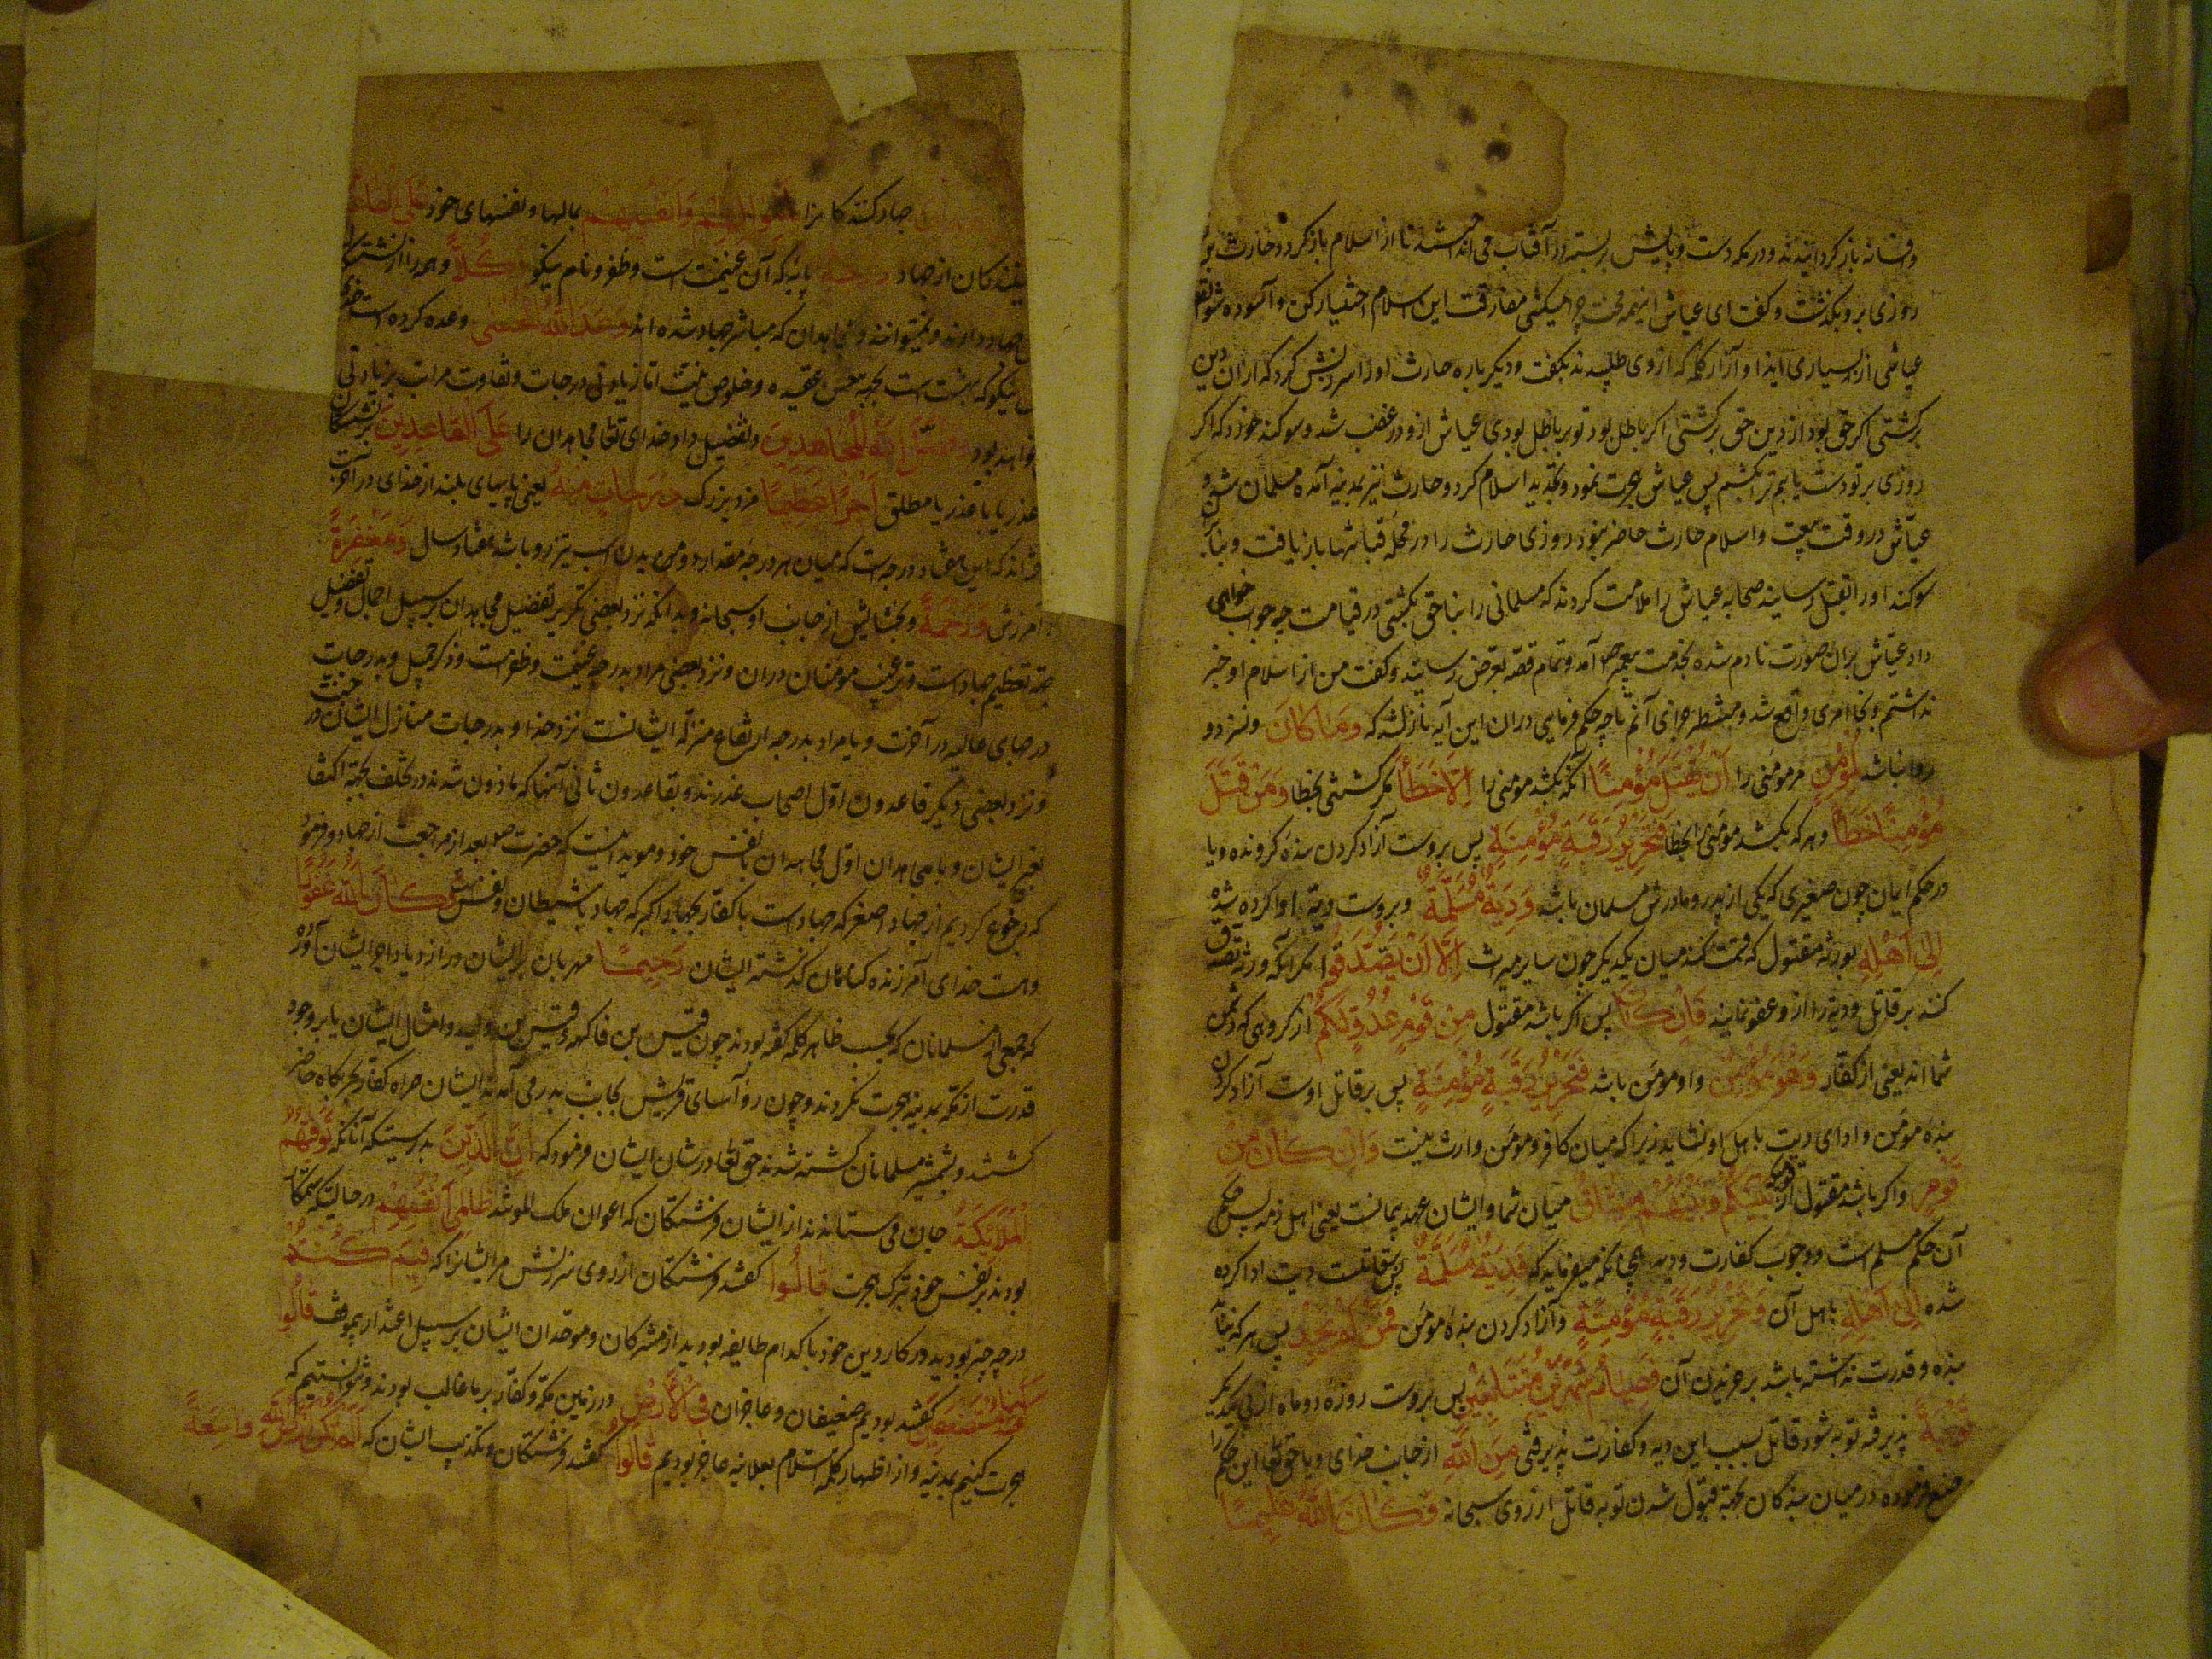 وفسانه باز گردانیدند و در مکه دست و پایش بربسته در آفتاب می انداختند تا از اسلام باز گردد و حارث بن
روزی برو بگذشت و گفت ای عیاش اینهمه محنت چرا میکشی مفارقت این اسلام اختیار کن و آسوده شو
عیاش از بسیاری ایذا و آزار کلمه که ازوی طلبیدند بگفت و دیگر باره حارث او را سرزنش کرد که از آن دین
برگشتی اگر حق بود از دین حق برگشتی اگر باطل بود تو بر باطل بودی عیاش ازو در غضب شد و سوگند خورد که اگر
روزی بر تو دست یابم ترا بکشم پس عیاش هجرت نمود و تجدید اسلام کرد و حارث نیز بمدینه آمده مسلمان شد و
عیاش در وقت بیعت و اسلام حارث حاضر نبود روزی حارث را در محله قبا تنها باز یافت و بنا بر
سوگند او را بقتل رسانید صحابه عیاش را ملامت کردند که مسلمانی را بناحق بکشتی در قیامت چه جواب خواهی
داد عیاش بران صورت نادم شده بخدمت پیغمبر آمد و تمام قصه بعرض رسانید و گفت من از اسلام او خبر
نداشتم این آیه نازل شد که وَمَا كَانَ و نسزد و
روا نباشد لِمُؤْمِنٍ مر مومنی را أَنْ يَقْتُلَ مُؤْمِنًا آنکه بکشد مومنی را إِلَّا خَطَأً مگر کشتنی بخطا وَمَنْ قَتَلَ
مُؤْمِنًا خَطَأً و هر که بکشد مومنی را بخطا فَتَحْرِيرُ رَقَبَةٍ مُؤْمِنَةٍ پس بروست آزاد کردن بنده گرونده و یا
در حکم ایمان چون صغیری که یکی از پدر و مادرش مسلمان باشد وَدِيَةٌ مُسَلَّمَةٌ و بروست دیتی ادا کرده شده
إِلَى أَهْلِهِ بورثه مقتول که قسمت کنند میان یکدیگر چون سایر میراث إِلَّا أَنْ يَصَّدَّقُوا مگر آنکه ورثه تصدق
کنند بر قاتل و دیت را ازو عفو نمایند فَإِنْ كَانَ پس اگر باشد مقتول مِنْ قَوْمٍ عَدُوٍّ لَكُمْ از گروهی که دشمن
شما اند یعنی از کفار وَهُوَ مُؤْمِنٌ و او مومن باشد فَتَحْرِيرُ رَقَبَةٍ مُؤْمِنَةٍ پس بر قاتل اوست آزاد کردن
بنده مومن و ادای دیت باهل او نشاید زیرا که میان کافر و مومن وارث نیست وَإِنْ كَانَ مِنْ
قَوْمٍ و اگر باشد مقتول از قومیکه بَيْنَكُمْ وَبَيْنَهُمْ مِيثَاقٌ میان شما و ایشان عهد و پیمانست یعنی اهل ذمه پس حکم
آن حکم مسلم است در وجوب کفارت و دیه همچنانکه میفرماید که فَدِيَةٌ مُسَلَّمَةٌ پس بر قاتلست دیت ادا کرده
شده إِلَى أَهْلِهِ باهل آن وَتَحْرِيرُ رَقَبَةٍ مُؤْمِنَةٍ و آزاد کردن بنده مومن فَمَنْ لَمْ يَجِدْ پس هر که نیابد
بنده و قدرت نداشته باشد بر خریدن آن فَصِيَامُ شَهْرَيْنِ مُتَتَابِعَيْنِ پس بروست روزه دو ماه از پی یکدیگر
تَوْبَةً پذیرفته توبه شود قاتل بسبب این دیه و کفارت پذیرفتنی مِنَ اللَّهِ از جانب خدای و یا حق تعالی این حکم را
فرموده در میان بندگان بجهة قبول شدن توبه قاتل از روی سبحانه وَكَانَ اللَّهُ عَلِيمًا
جهاد کنندگانرا بِأَمْوَالِهِمْ وَأَنْفُسِهِمْ بمالها و نفسهای خود عَلَى الْقَاعِدِينَ
کان از جهاد دَرَجَةً پایه که آن غنیمت است و ظفر و نام نیکو وَكُلًّا و هر را از نشستگان
جهاد دارند و نمیتوانند و مجاهدان که مباشر جهاد شده اند وَعَدَ اللَّهُ الْحُسْنَى وعده کرده است خدای
نیکو که بهشت است بجهة حسن عقیده و خلوص نیت اما زیادتی درجات و تفاوت مراتب بزیادتی
خواهد بود وَفَضَّلَ اللَّهُ الْمُجَاهِدِينَ و تفضیل داد خدای تعالی مجاهدان را عَلَى الْقَاعِدِينَ بر نشستگان
عذر یا با عذر یا مطلق أَجْرًا عَظِيمًا مزد بزرگ دَرَجَاتٍ مِنْهُ یعنی پایهای بلند از خدای در آخرت
که این هفتاد درجه است که میان هر درجه مقدار دویدن اسب تیزرو باشد هفتاد سال وَمَغْفِرَةً
و آمرزش وَرَحْمَةً و بخشایش از جانب او سبحانه و بدانکه نزد بعضی تکریر تفضیل مجاهدان بر سبیل اجمال و تفصیل
جهة تعظیم جهاد است و ترغیب مومنان دران و نزد بعضی مراد بدرجه غنیمت و ظفر است و ذکر جمیل و بدرجات
درجهای عالیه در آخرت و یا مراد بدرجه ارتفاع منزله ایشانست نزد خدا و بدرجات منازل ایشان در جنت
و نزد بعضی دیگر قاعدون اول اصحاب عذرند و بقاعدون ثانی آنها که ماذون شدند در تخلف بجهة اکتفا
بغیر ایشان و یا مجاهدان اول مجاهدان بانفس خود و موید اینست که حضرت بعد از مراجعت از جهاد فرمود
که رجوع کردیم از جهاد اصغر که جهاد است با کفار بجهاد اکبر که جهاد با شیطان و نفس است وَكَانَ اللَّهُ غَفُورًا
و هست خدای آمرزنده گناهان گذشته ایشان رَحِيمًا مهربان بر ایشان در ازدیاد اجر ایشان آورده
که جمعی از مسلمانان که بحسب ظاهر کلمه گفته بودند چون قیس بن فاکهه و قیس بن ولید و امثال ایشان با وجود
قدرت از مکه بمدینه هجرت نکردند و چون رؤسای قریش بجانب بدر می آمدند ایشان همراه کفار بحربگاه حاضر
گشتند و بشمشیر مسلمانان کشته شدند حق تعالی در شان ایشان فرمود که إِنَّ الَّذِينَ بدرستیکه آنانکه تَوَفَّاهُمُ
الْمَلَائِكَةُ جان می ستانند از ایشان فرشتگان که اعوان ملک الموتند ظَالِمِي أَنْفُسِهِمْ در حالتیکه ستمکار
بودند بر نفس خود بترک هجرت قَالُوا گفتند فرشتگان از روی سرزنش مر ایشانرا که فِيمَ كُنْتُمْ
در چه چیز بودید در کار دین خود با کدام طایفه بودید از مشرکان و موحدان ایشان بر سبیل اعتذار قَالُوا
كُنَّا مُسْتَضْعَفِينَ گفتند بودیم ضعیفان و عاجزان فِي الْأَرْضِ در زمین مکه و کفار بر ما غالب بودند و نتوانستیم که
هجرت کنیم بمدینه و از اظهار کلمه اسلام بعلانیه عاجز بودیم قَالُوا گفتند فرشتگان و تکذیب ایشان که أَلَمْ تَكُنْ أَرْضُ اللَّهِ وَاسِعَةً